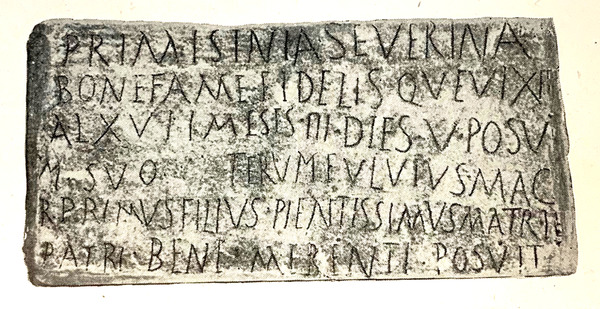 PRIMISINIA SEVERINA
BONE FAME FIDELIS QVE VIXIT
AL XVII MESES III·DIES·V·POSV
M·SVO TERVM FVLVIVS·MAC
R PRIMVS FILIVS·PIENTISSIMVS MATRI E
PATRI·BENE·MERENTI·POSVIT